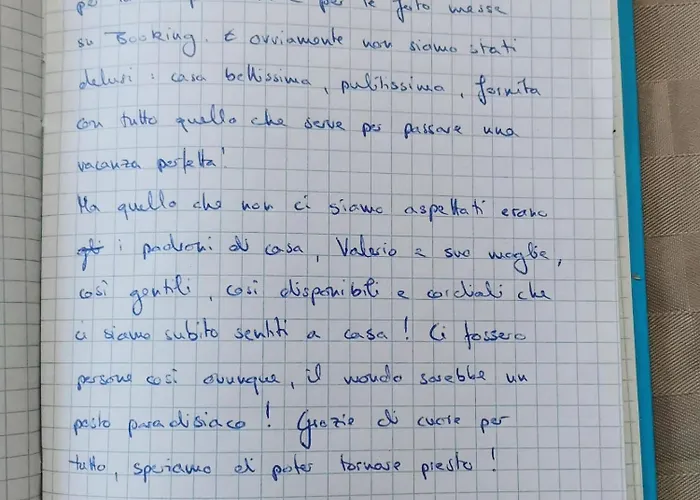 per le foto messe
su Booking. E ovviamente non siamo stati
delusi: casa bellissima, pulitissima, fornita
con tutto quello che serve per passare una
vacanza perfetta!
Ma quello che non ci siamo aspettati erano
i padroni di casa, Valerio e sua moglie,
così gentili, così disponibili e cordiali che
ci siamo subito sentiti a casa! Ci fossero
persone così ovunque, il mondo sarebbe un
posto paradisiaco! Grazie di cuore per
tutto, speriamo di poter tornare presto!